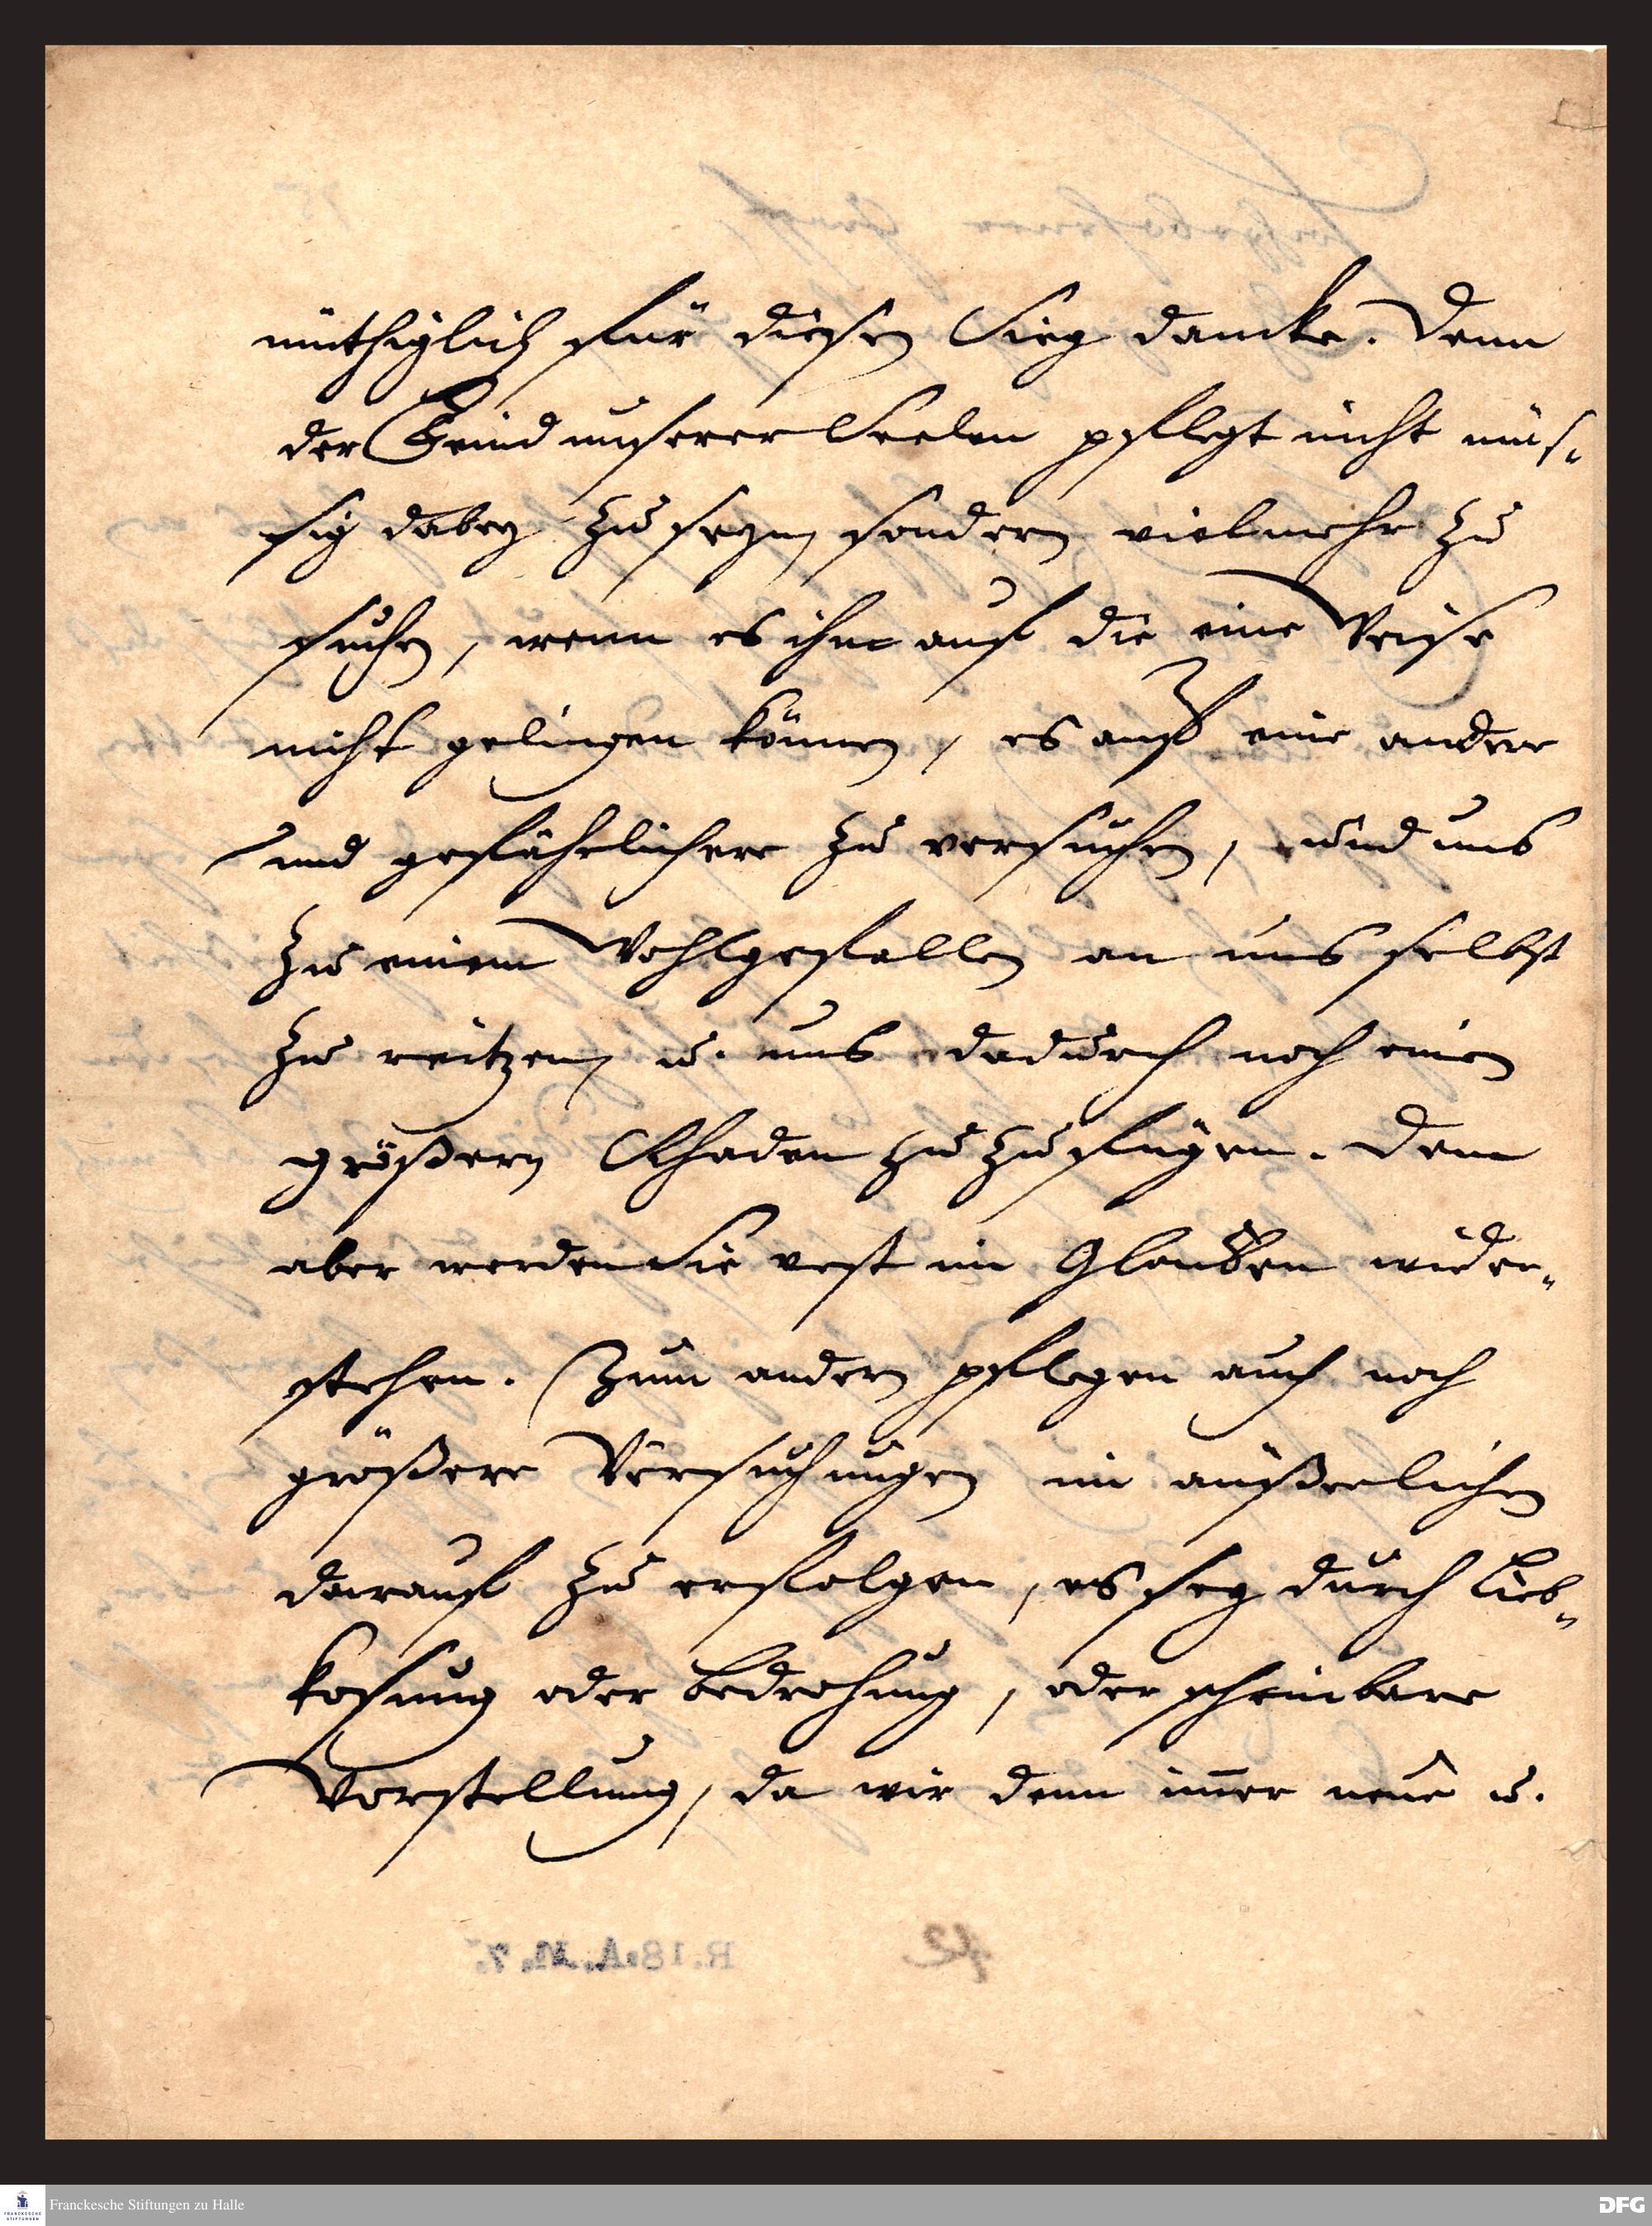 müthiglich für diesen Sieg dancke. Denn
der Feind unserer Seelen pflegt nicht müs-
sig dabey zu seyn sondern vielmehr zu
suchen, wenn es ihm auf die eine Weise
nicht gelingen können, es auf eine andere
und gefährlichere zu versuchen, und uns
zu einem Wohlgefallen an uns selbst
zu reitzen u. uns dadurch noch einen
größern Schaden zuzufügen. Dem
aber werden Sie vest im Glauben wieder-
stehen. Zum andern pflegen auch noch
größere Versuchungen im äußerlichen
darauf zu erfolgen, es sey durch Lieb-
kosung oder Bedrohung, oder scheinbare
Vorstellung, da wir denn im̄er neue u.
R. 18. A. M. 7.
42
FRANCKESCHE STIFTUNGEN
Franckesche Stiftungen zu Halle
DFG